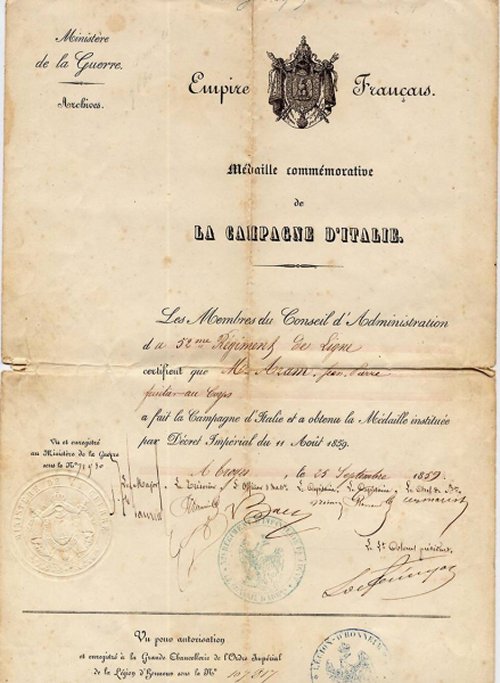 Ministère
de la Guerre.
Archives.
Empire Français.
Médaille commémorative
de
LA CAMPAGNE D'ITALIE.
Les Membres du Conseil d'Administration
du 52me Régiment de Ligne
certifient que M. Azam, Jean Pierre
fusilier au Corps
a fait la Campagne d'Italie et a obtenu la Médaille instituée
par Décret Impérial du 11 Août 1859.
Vu et enregistré
au Ministère de la Guerre
sous le N°
A Troyes, le 25 Septembre 1859.
Le Major, Le Trésorier, L'Officier d'hab. Le Capitaine, Le Capitaine, Le Chef de Bon
Le Lt Colonel président,
Vu pour autorisation
et enregistré à la Grande Chancellerie de l'Ordre Impérial
de la Légion d'Honneur sous le N°
LÉGION D'HONNEUR